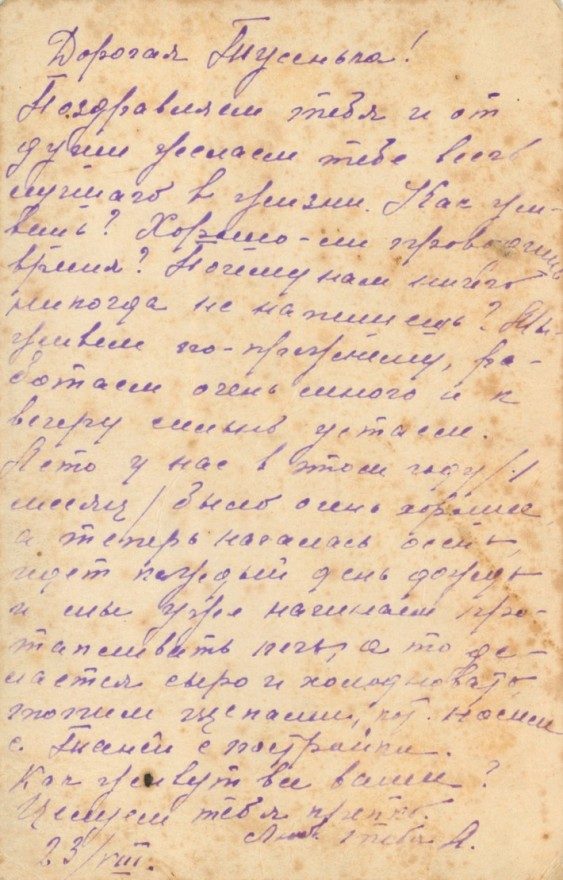 Дорогая Тусенька!
Поздравляем тебя и от
души желаем тебе всего
лучшаго в жизни. Как жи-
вешь? Хорошо-ли проводишь
время? Почему нам ничего
никогда не напишешь? Мы
живем по-прежнему, ра-
ботаем очень много и к
вечеру сильно устаем.
Лето у нас в этом году /1
месяц/ было очень хорошее,
а теперь началась осень,
идет каждый день дождь
и мы уже начинаем про-
тапливать печь, а то де-
лается сыро и холодновато,
топим щепами, кот. носим
с Таней с постройки.
Как живут все ваши?
Целуем тебя крепко.
тебя А.
23/VIII.